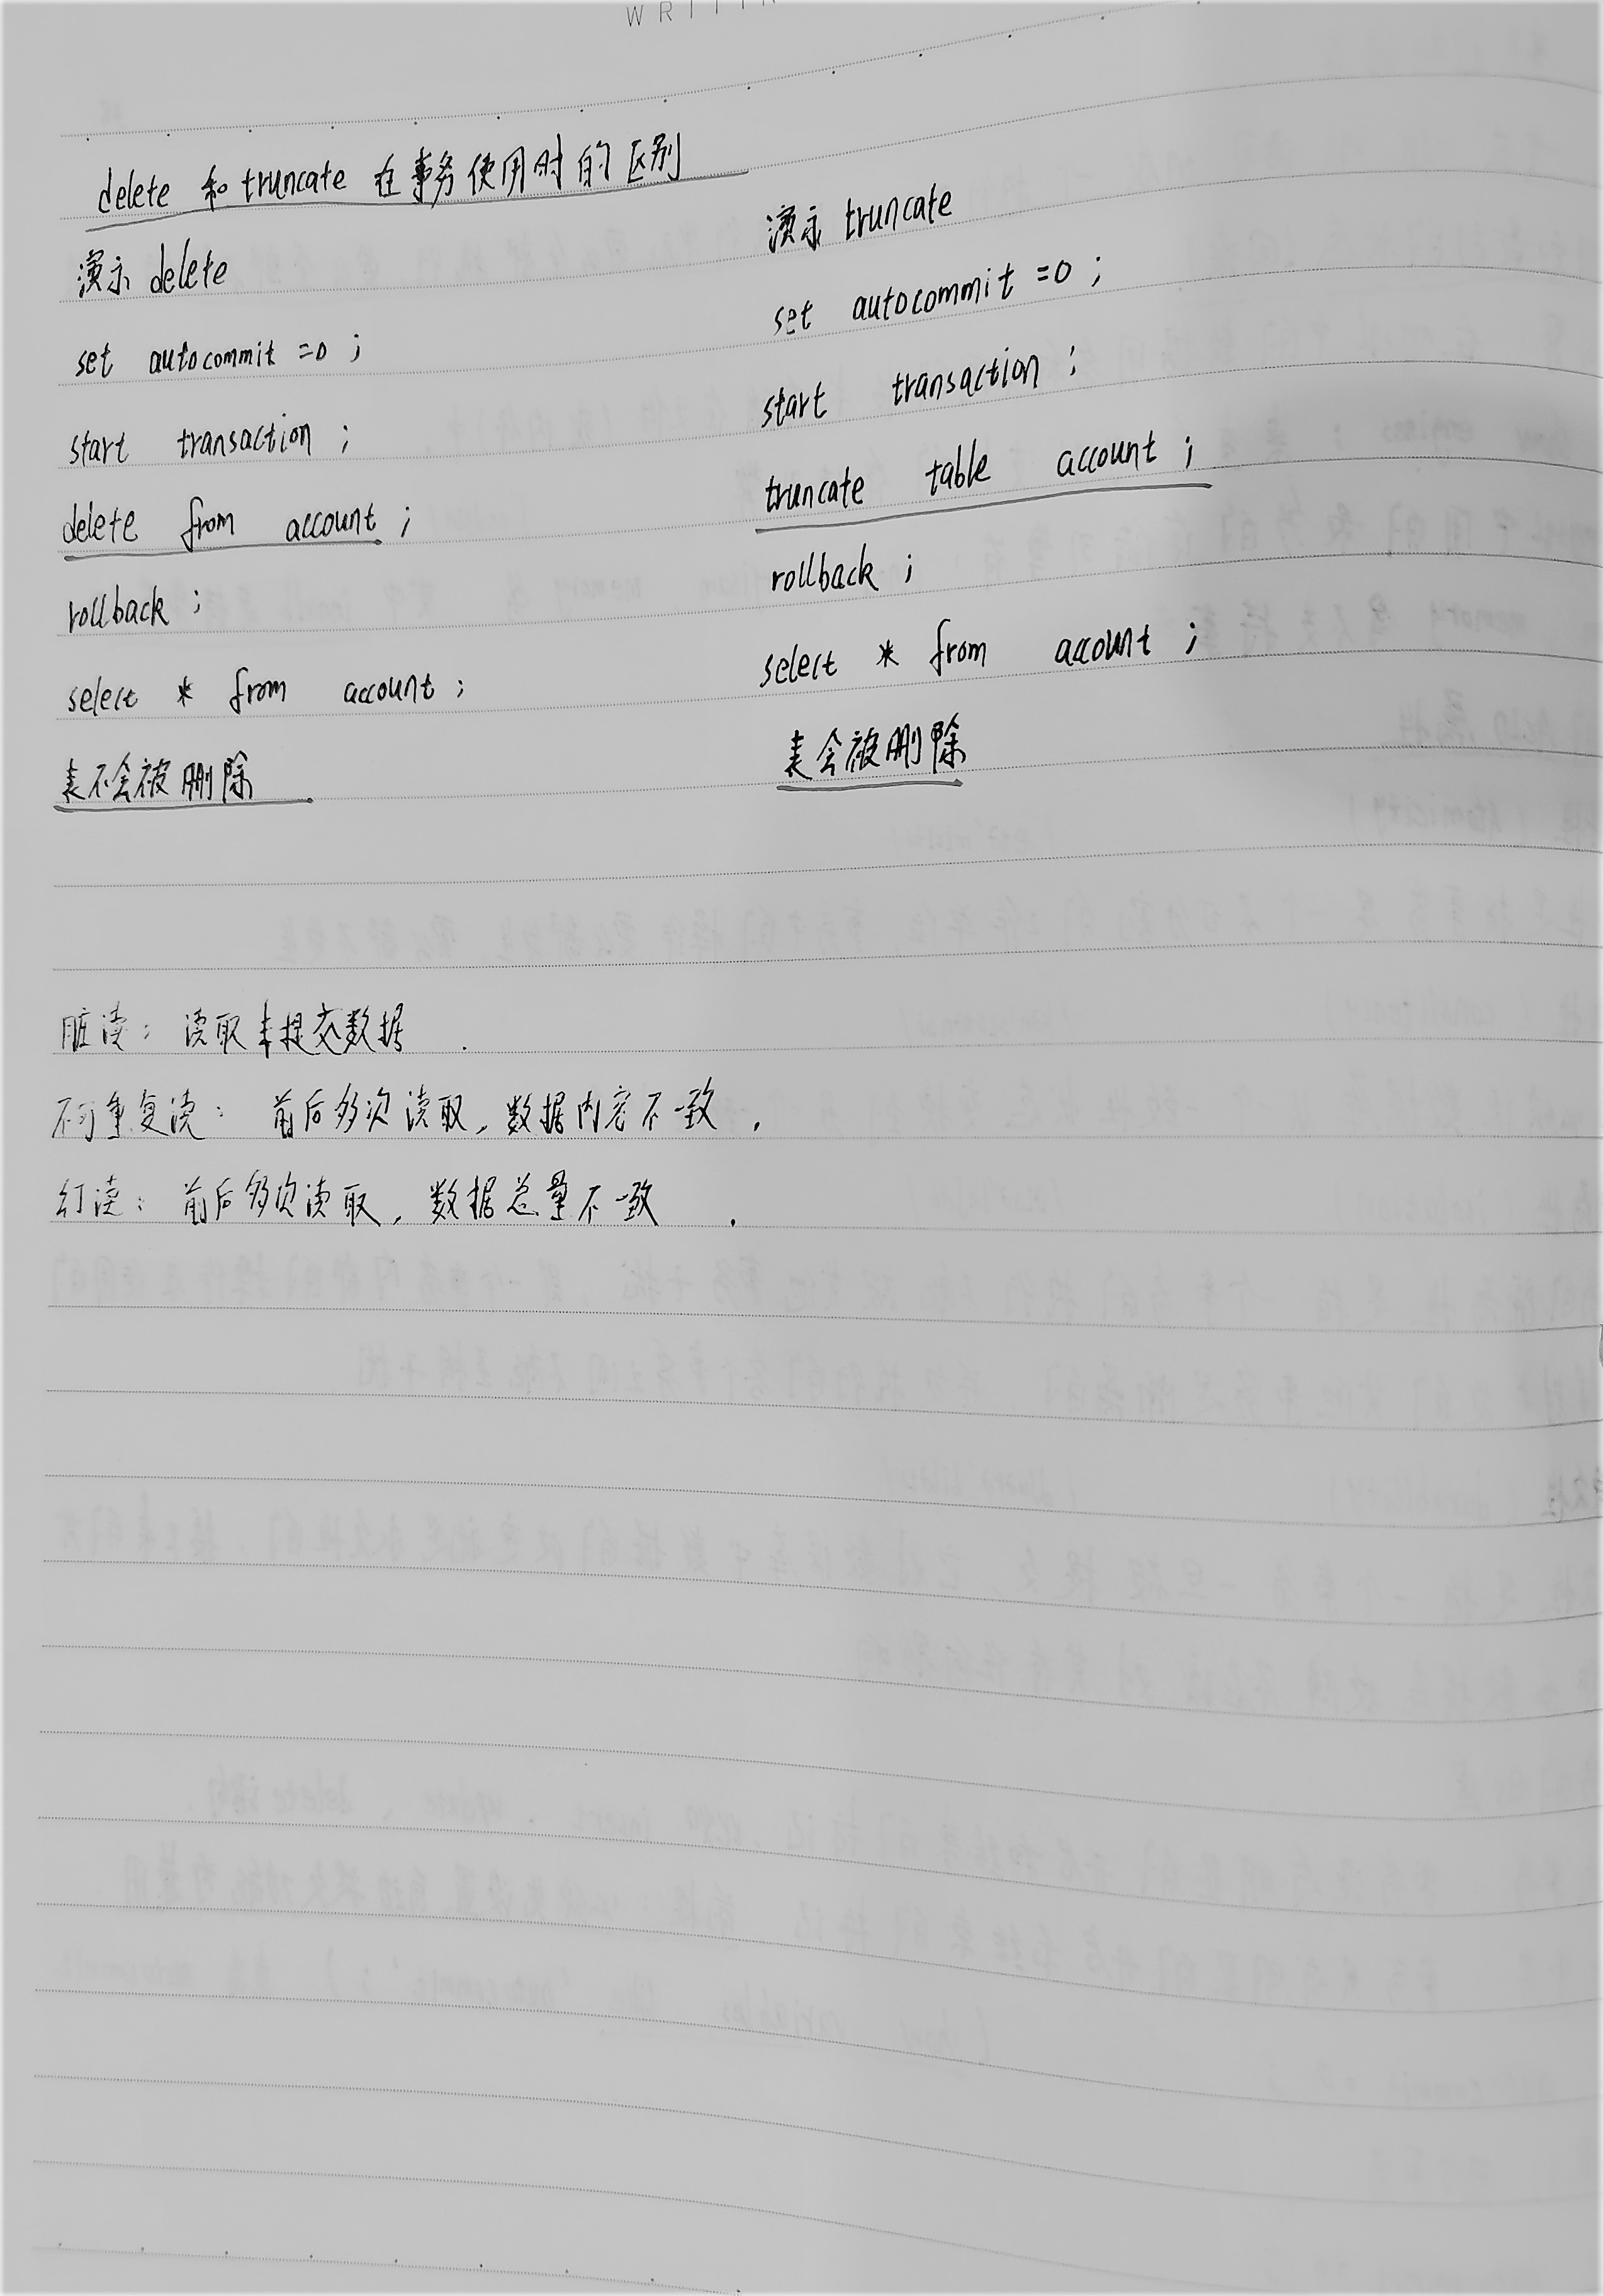 delete 和 truncate 在事务使用时的区别
演示 delete
set autocommit =0 ;
start transaction ;
delete from account ;
rollback ;
select * from account ;
表不会被删除
演示 truncate
set autocommit =0 ;
start transaction ;
truncate table account ;
rollback ;
select * from account ;
表会被删除
脏读: 读取未提交数据 .
不可重复读: 前后多次读取, 数据内容不一致 .
幻读: 前后多次读取, 数据总量不一致 .